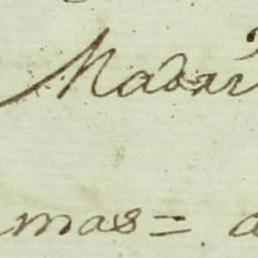 Madar
mas= a